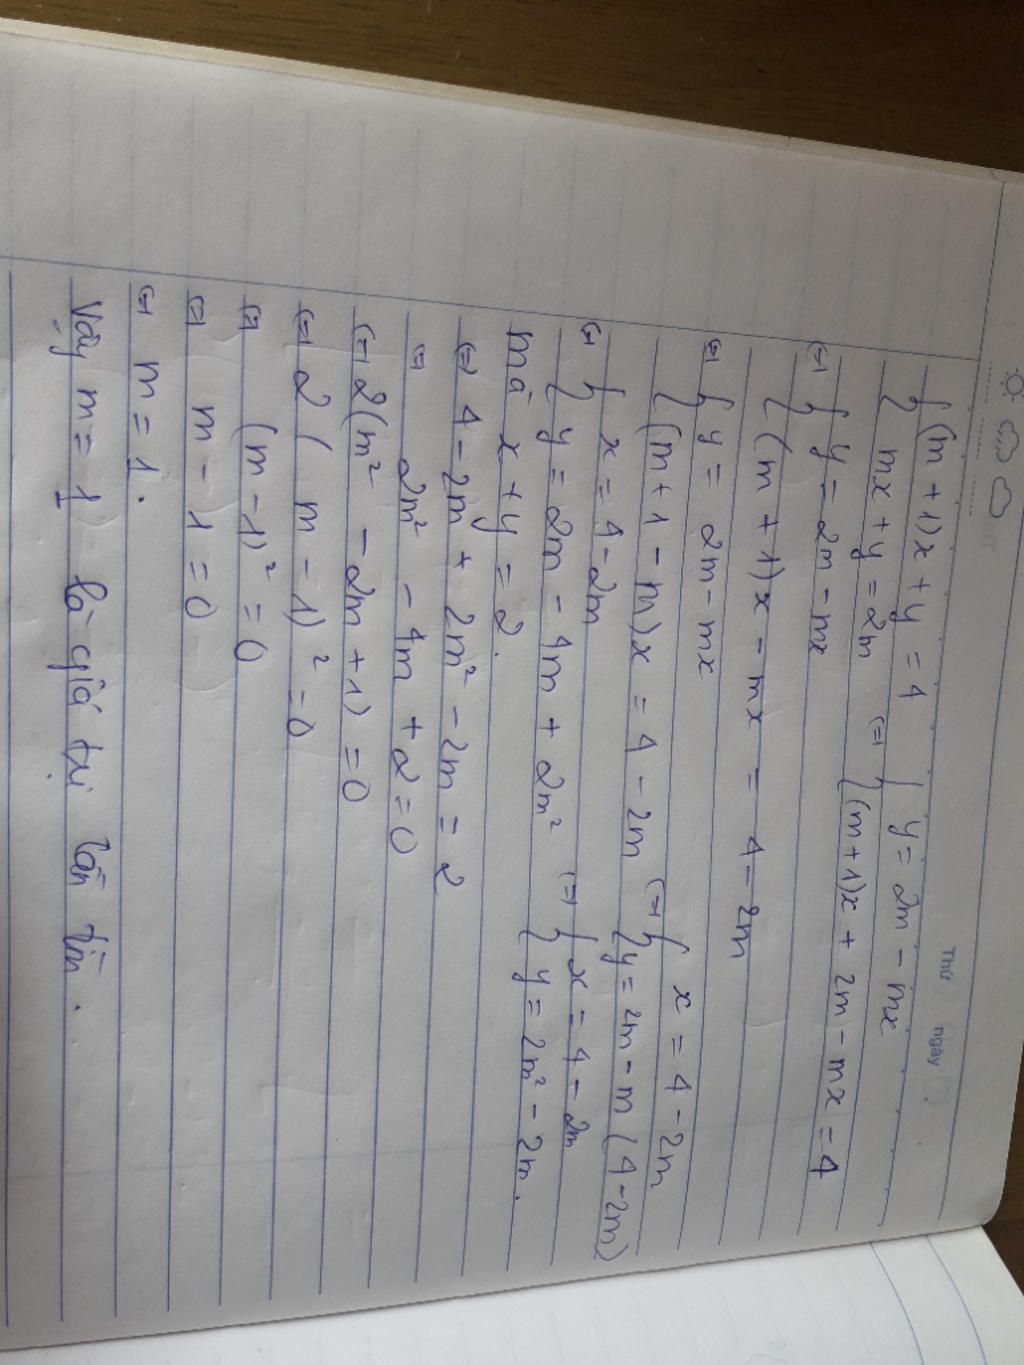 Thứ ngày
{(m + 1)x + y = 4 { y = 2m - mx
{ mx + y = 2m (=) {(m+1)x + 2m - mx = 4
(=) { y = 2m - mx
{(m + 1)x - mx = 4 - 2m
(=) { y = 2m - mx
{(m + 1 - m)x = 4 - 2m (=) { x = 4 - 2m
{y = 2m - m (4 - 2m)
(=) { x = 4 - 2m
{ y = 2m - 4m + 2m² (=) { x = 4 - 2m
{ y = 2m² - 2m.
mà x + y = 2.
(=) 4 - 2m + 2m² - 2m = 2
(=) 2m² - 4m + 2 = 0
(=) 2(m² - 2m + 1) = 0
(=) 2 ( m - 1)² = 0
(=) (m - 1)² = 0
(=) m - 1 = 0
(=) m = 1.
Vậy m = 1 là giá trị cần tìm.